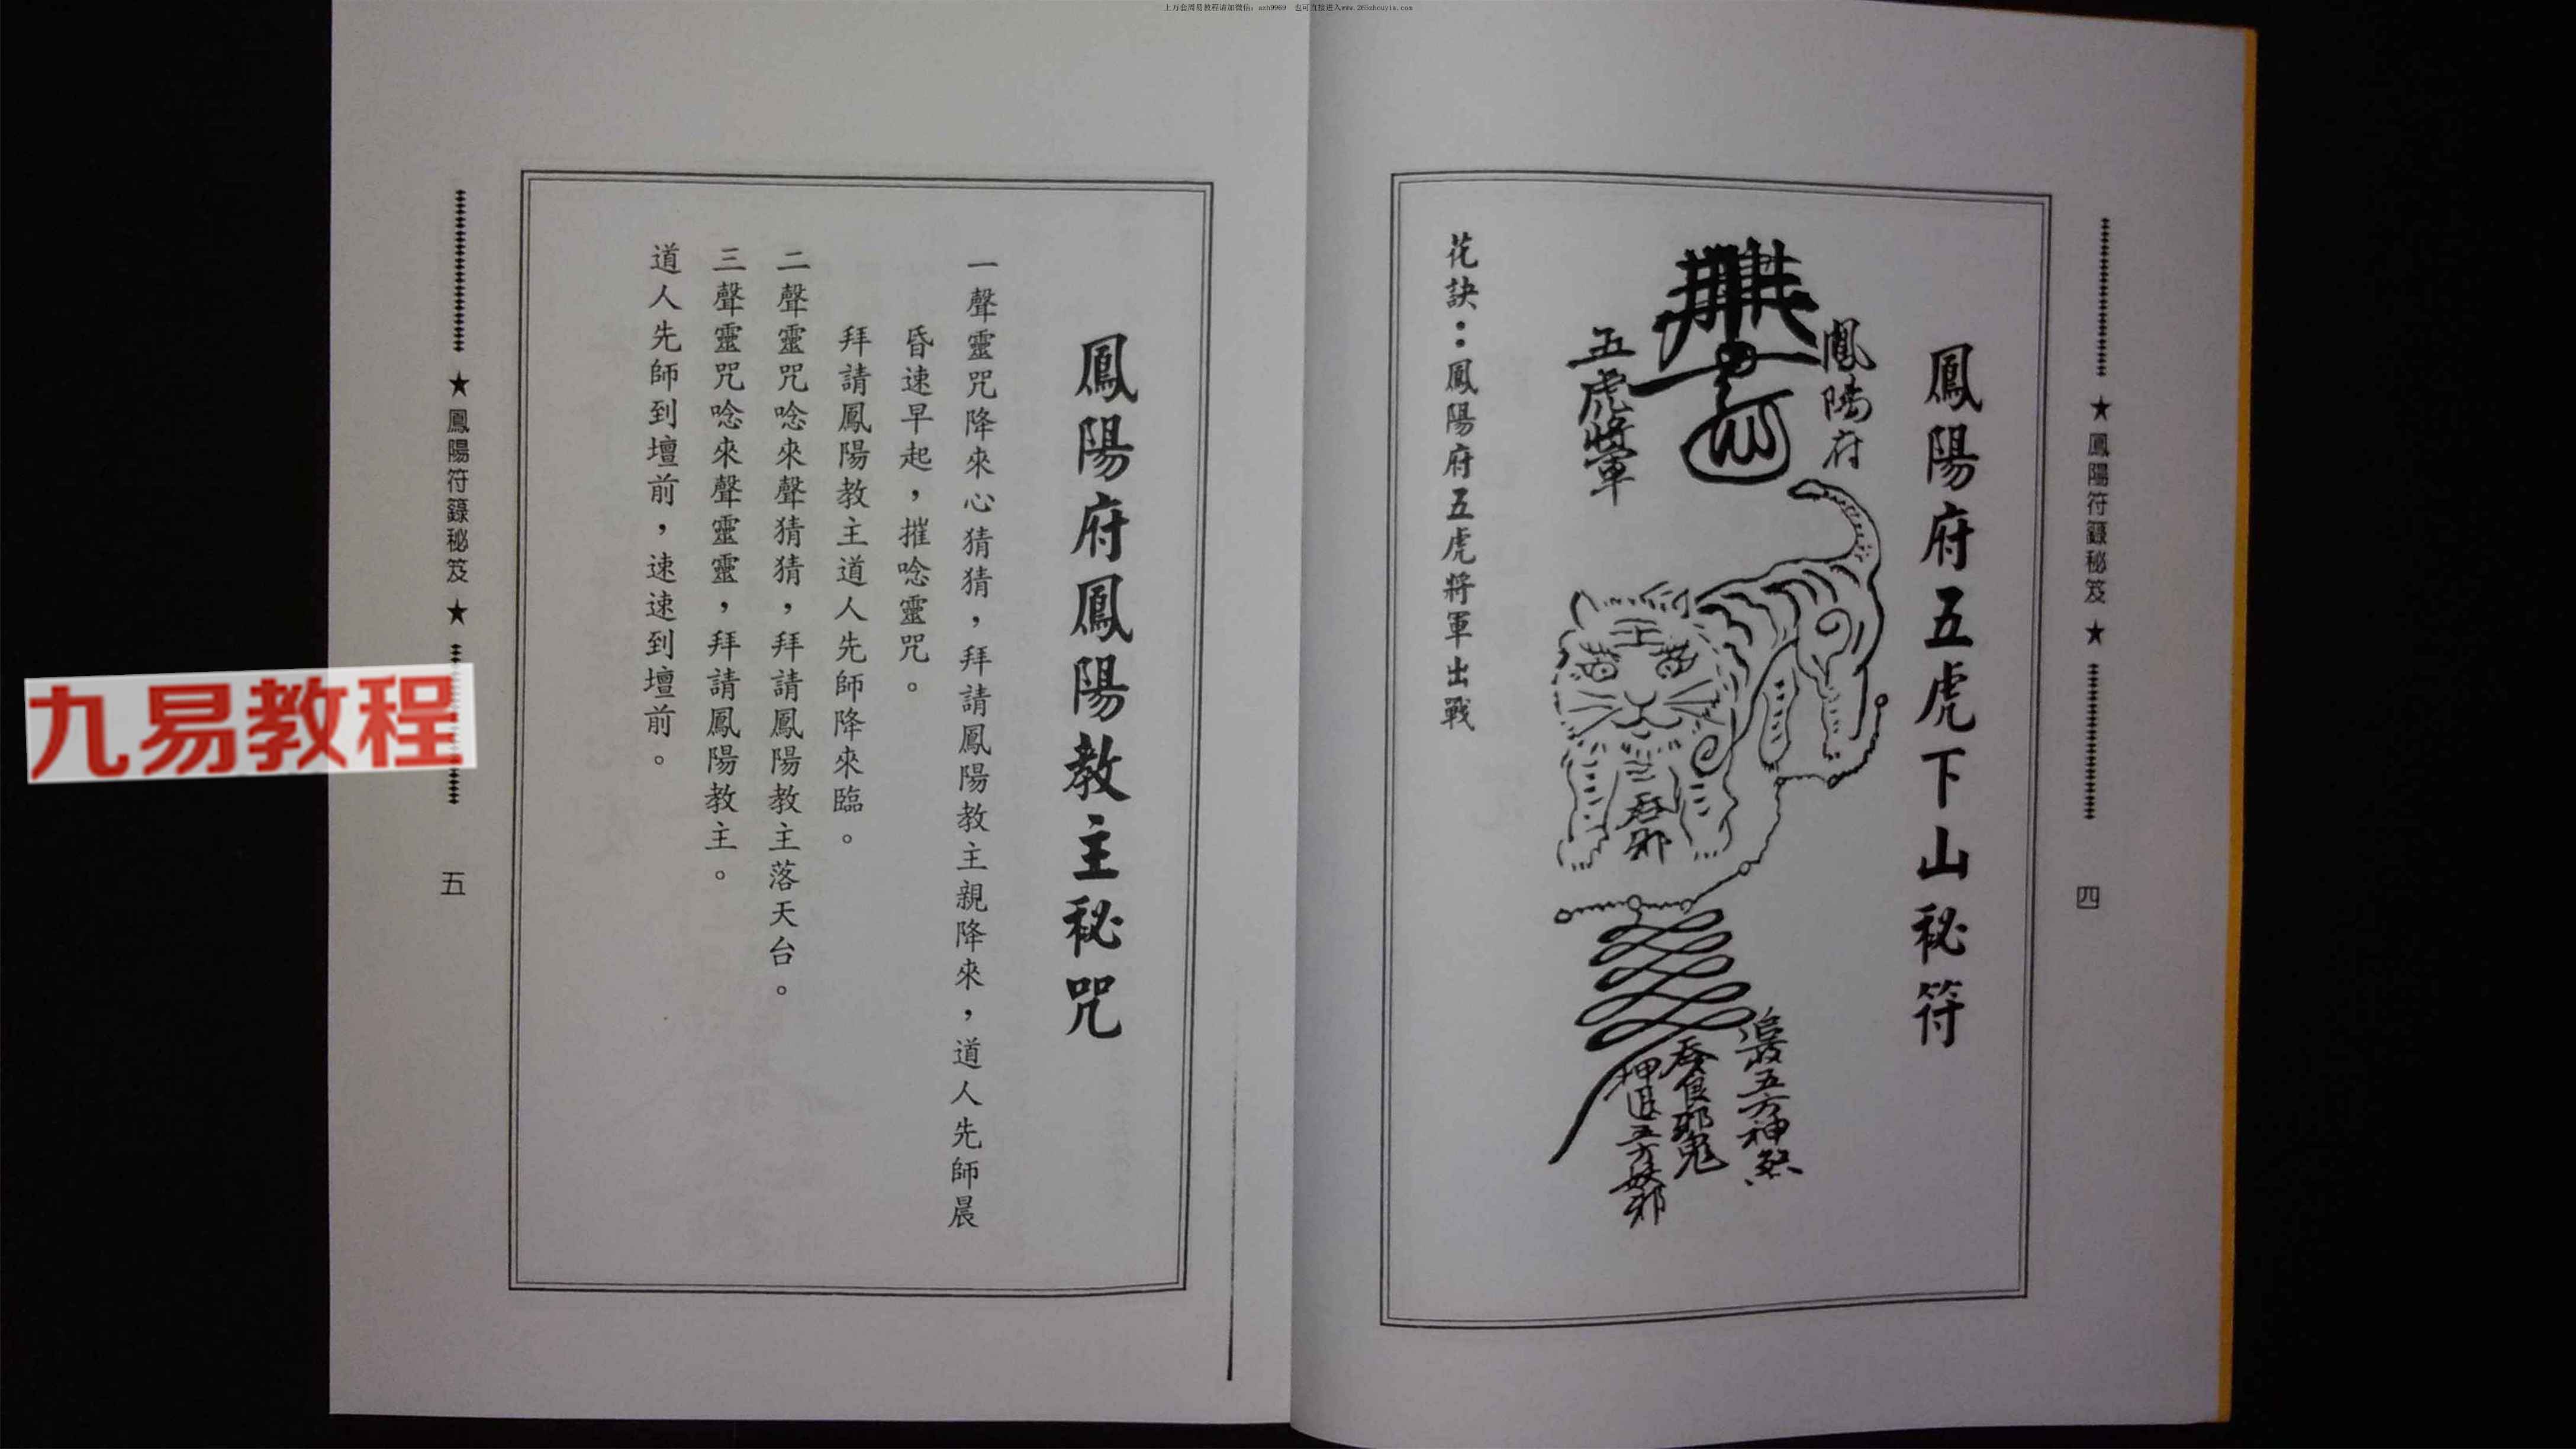 上万套周易教程请加微信：azh9969　也可直接进入www.265zhouyiw.com
★鳳陽符籙秘笈★
四
鳳陽府五虎下山秘符
鳳陽府
五虎將軍
吞邪
五方神煞
吞食邪鬼
五方妖邪
花訣：鳳陽府五虎將軍出戰
鳳陽府鳳陽教主秘咒
一聲靈咒降來心猜猜，拜請鳳陽教主親降來，道人先師晨
昏速早起，摧唸靈咒。
拜請鳳陽教主道人先師降來臨。
二聲靈咒唸來聲猜猜，拜請鳳陽教主落天台。
三聲靈咒唸來聲靈靈，拜請鳳陽教主。
道人先師到壇前，速速到壇前。
★鳳陽符籙秘笈★
五
九易教程